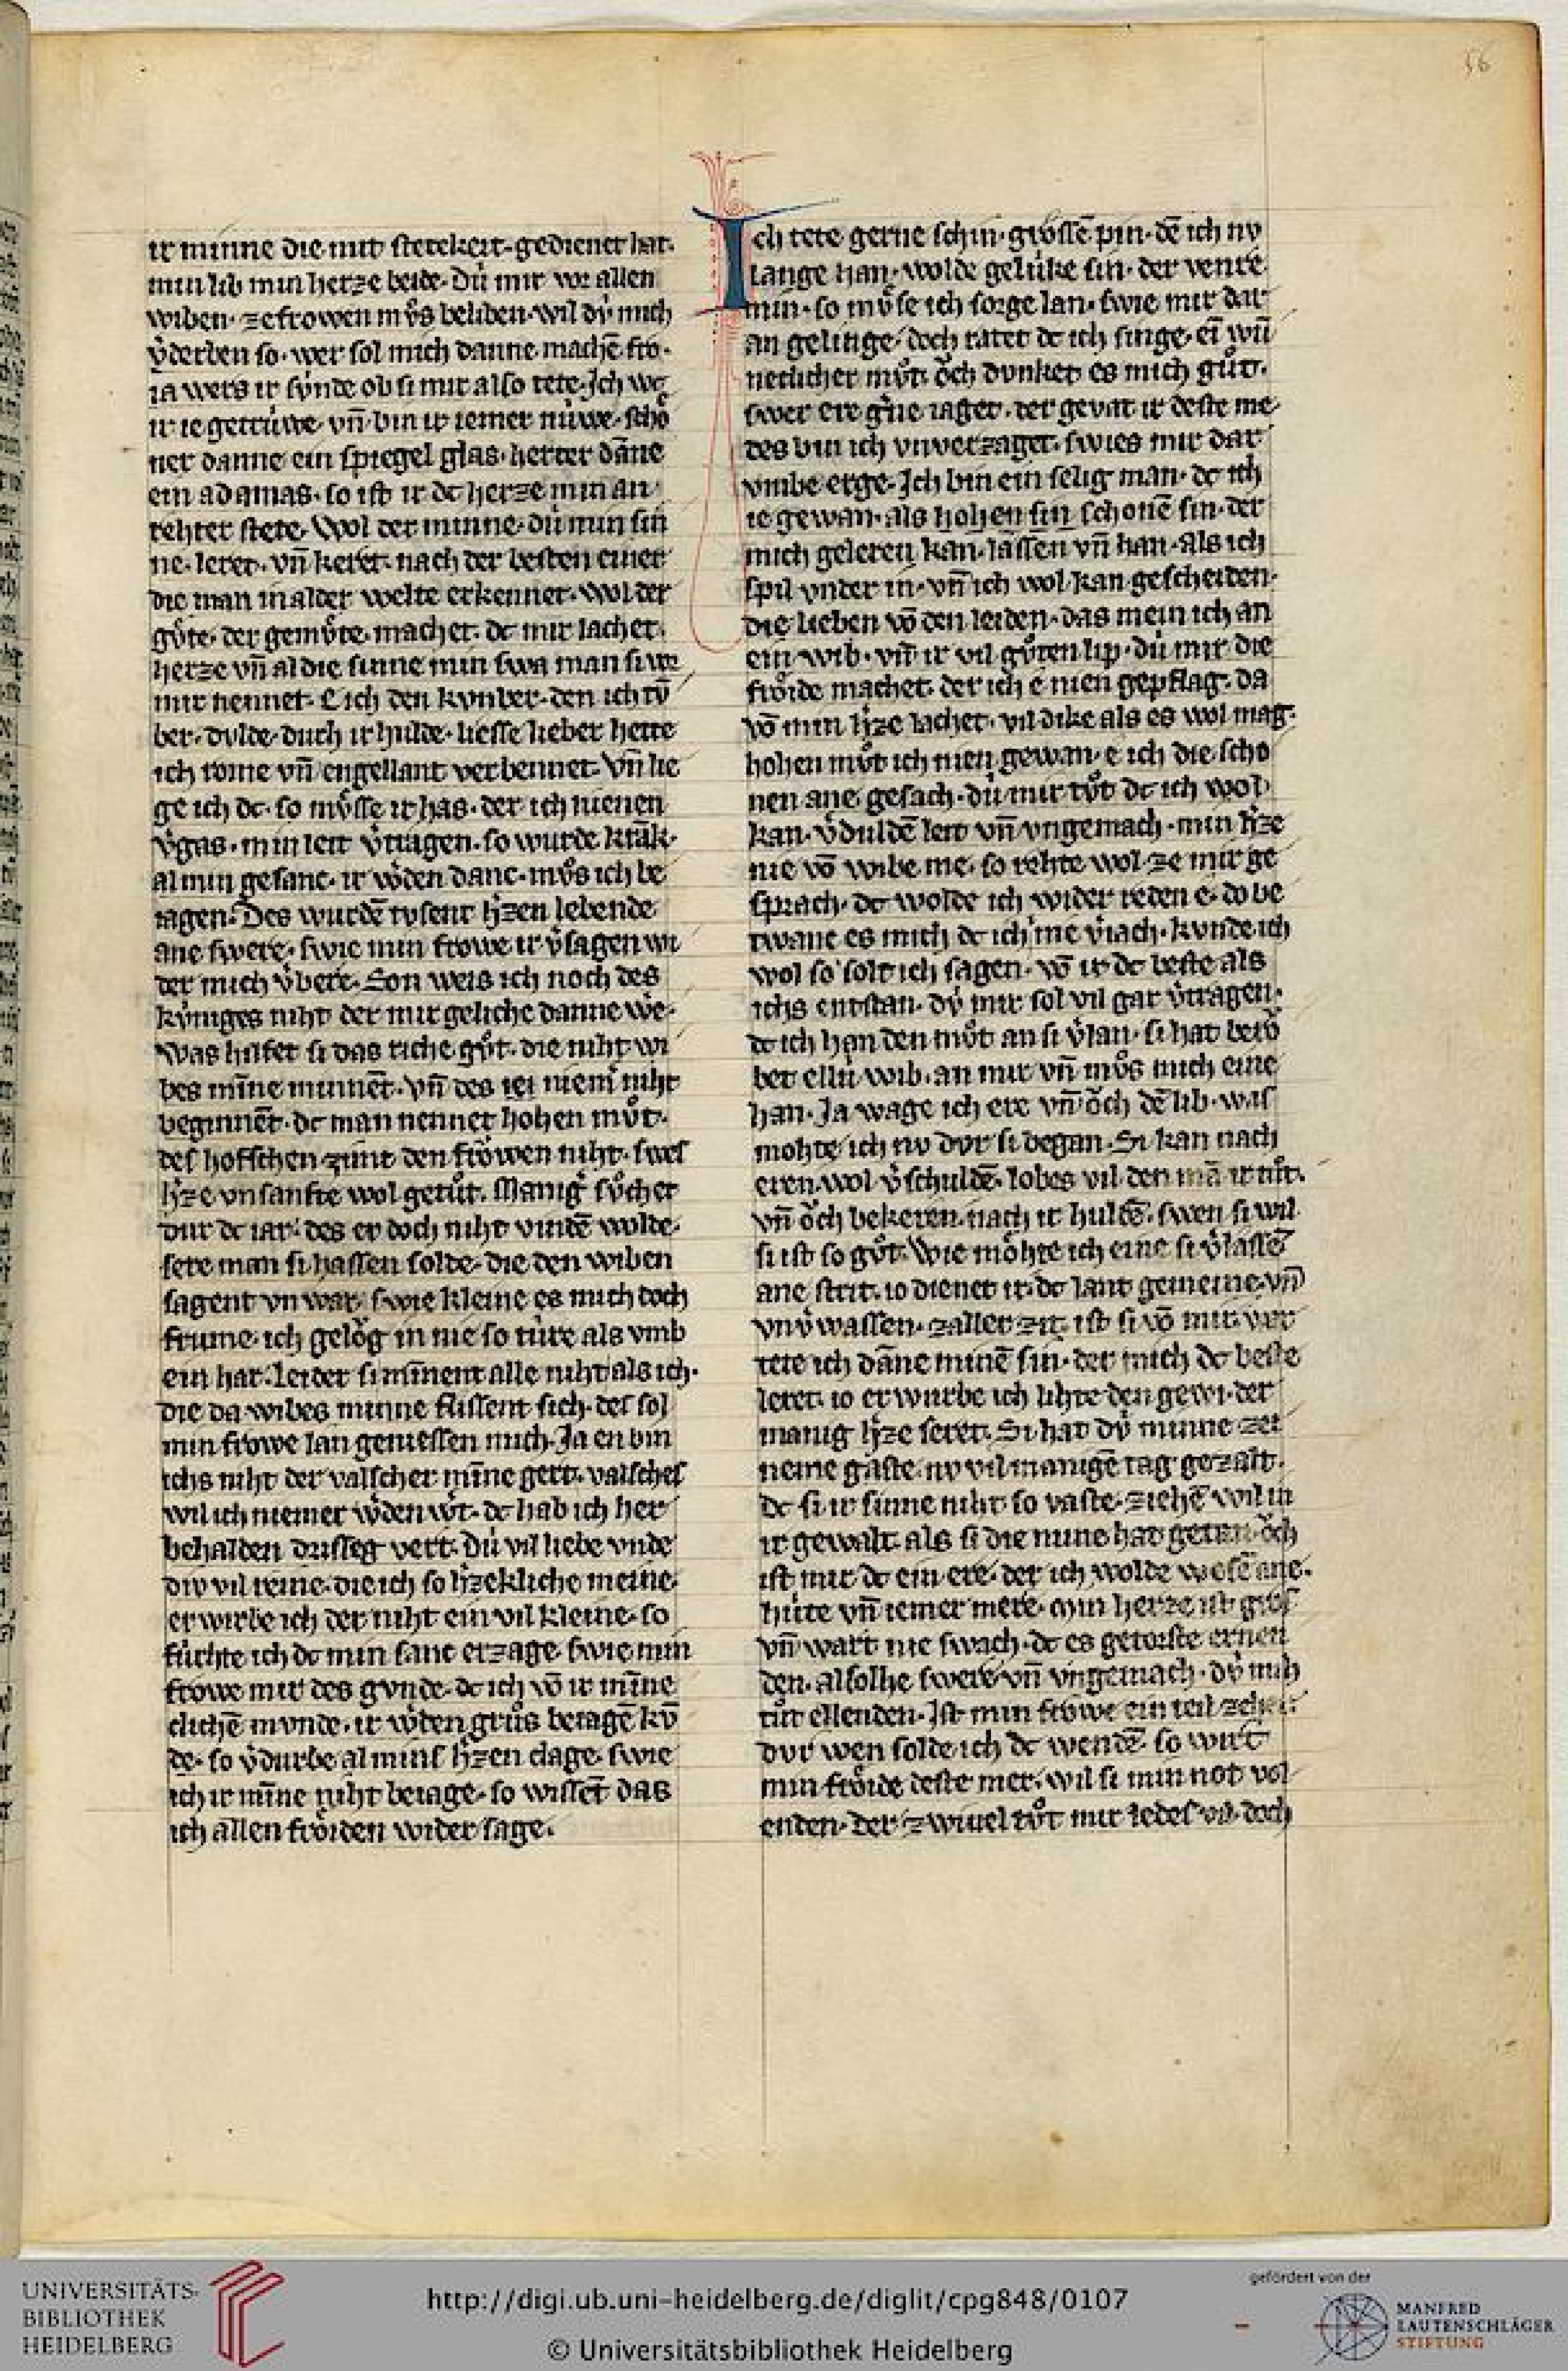 56
ir minne die mit stetekeit·gedienet hat·
min lib min herze beide·Dú mir vor allen
wiben·ze frowen mv̊s beliben·wil dv́ mich
v̓derben so·wer sol mich danne machē fro·
ia wers ir sv́nde ob si mir also tete·Ich wc
ir ie getrúwe·vn̄ bin ir iemer núwe·schô
ner danne ein spiegel glas·herter dāne
ein adamas·so ist ir dc herze min an
rehter stete·Wol der minne·dú min sin
ne·leret·vn̄ keret·nach der besten einer
die man in alder welte erkennet·wol der
gv̊te·der gemv̊te·machet·dc mir lachet·
herze vn̄ al die sinne min swa man si vor
mir nennet·E ich den kvmber·den ich tv̄
ber·dvlde·durh ir hulde·liesse lieber hette
ich rome vn̄ engellant verbennet·vn̄ lie
ge ich dc·so mv̊sse ir has·der ich nienen
v̓gas·min leit v̓tragen·so wurde krāk·
al min gesanc·ir w̓den danc·mv̊s ich be
iagen·Des wurdē tvsent h̓zen lebende
ane swere·swie min frowe ir v̓sagen wi
der mich v̓bere·Son weis ich noch des
kv́niges niht der mir geliche danne we̓
Was hilfet si das riche gv̊t·die niht wi
bes mīne minnēt·vn̄ des iei niem̓ niht
beginnēt·dc man nennet hohen mv̊t·
des hofschen zimt den frôwen niht·swes
h̓ze vnsanfte wol getůt·Manig̓ sůchet
dur dc iar·des er doch niht vindē wolde·
sere man si hassen solde·die den wiben
sagent vn war·swie kleine es mich doch
frume·ich gelôg in nie so túre als vmb
ein har·leider si mīnent alle niht als ich·
die da wibes minne flissent sich·des sol
min frowe lan geniessen mich·Ja en bin
ichs niht der valscher mīne gert·valsches
wil ich niemer w̓den w̓t·dc hab ich her
behalden drisseg vert·Dú vil liebe vnde
div vil reine·die ich so h̓zekliche meine·
erwirbe ich der niht ein vil kleine·so
fúrhte ich dc min sanc erzage·swie min
frowe mir des gvnde·dc ich vō ir mīne
clichē mvnde·ir w̓den grůs beiagē kv̄
de·so v̓durbe al mins h̓zen clage·swie
ich ir mīne niht beiage·so wissēt das
ich allen frôiden widersage·
Ich tete gerne schin·grossē pin·dē ich nv
lange han·wolde gelúke sin·der vente
min·so mv̊se ich sorge lan·swie mir dar
an gelinge·doch ratet dc ich singe·ei wū
neclicher mv̊t·ôch dvnket es mich gůt·
swer ere g̓ne iaget·der gevat ir deste me·
des bin ich vnverzaget·swies mir dar
vmbe erge·Ich bin ein selig man·dc ich
ie gewan·als hohen sin schonē sin·der
mich geleren kan·lassen vn̄ han·als ich
spil vnder in·vn̄ ich wol kan gescheiden·
die lieben vō den leiden·das mein ich an
ein wib·vn̄ ir vil gůten lip·dú mir die
frôide machet·der ich e nien gepflag·da
vō min h̓ze lachet·vil dike als es wol mag·
hohen mv̊t ich nien gewan·e ich die scho
nen ane gesach·dú mir tůt dc ich wol
kan·v̓duldē leit vn̄ vngemach·min h̓ze
nie vō wibe me·so rehte wol·ze mir ge
sprach·dc wolde ich wider reden e·do be
twanc es mich dc ich ime v̓iach·kvnde ich
wol so solt ich sagen·vō ir dc beste als
ichs entstan·dv́ mir sol vil gar v̓tragen·
dc ich han den mv̊t an si v̓lan·si hat betô
bet ellú wib·an mir vn̄ mv̊s mich eine
han·Ja wage ich ere vn̄ ôch dē lib·was
mohte ich nv dvr si began·Si kan nach
eren·wol v̓schuldē·lobes vil den mā ir nit·
vn̄ ôch bekeren·nach ir huldē·swen si wil
si ist so gůt·Wie môhte ich eine si v̓lassē
ane strit·io dienet ir·dc lant gemeine·vn̄
vnv̓wassen·zaller zit·ist si vō mir·var
tete ich dāne minē sin·der mich dc beste
leret·io erwurbe ich lihte den gewi·der
manig h̓ze seret·Si hat dv́ minne zei
neme gaste·nv vil manigē tag gezalt·
dc si ir sinne niht so vaste·ziehē wil in
ir gewalt·als si die mine hat getan·ôch
ist mir·dc ein ere·der ich wolde wesē ane·
húte vn̄ iemer mere·Min herze ist gros
vn̄ wart nie swach·dc es getorste ernen
den·alsolhe swere vn̄ vngemach·dv́ mih
tůt ellenden·Ist min frowe ein teil zeher·
dvr wen solde ich dc wendē·so wirt
min frôide deste mer·wil si min not vol
enden·der zwiuel tůt mir iedes·vil·doch
UNIVERSITÄTS-
BIBLIOTHEK
HEIDELBERG
http://digi.ub.uni-heidelberg.de/diglit/cpg848/0107
© Universitätsbibliothek Heidelberg
gefördert von der
MANFRED
LAUTENSCHLÄGER
STIFTUNG